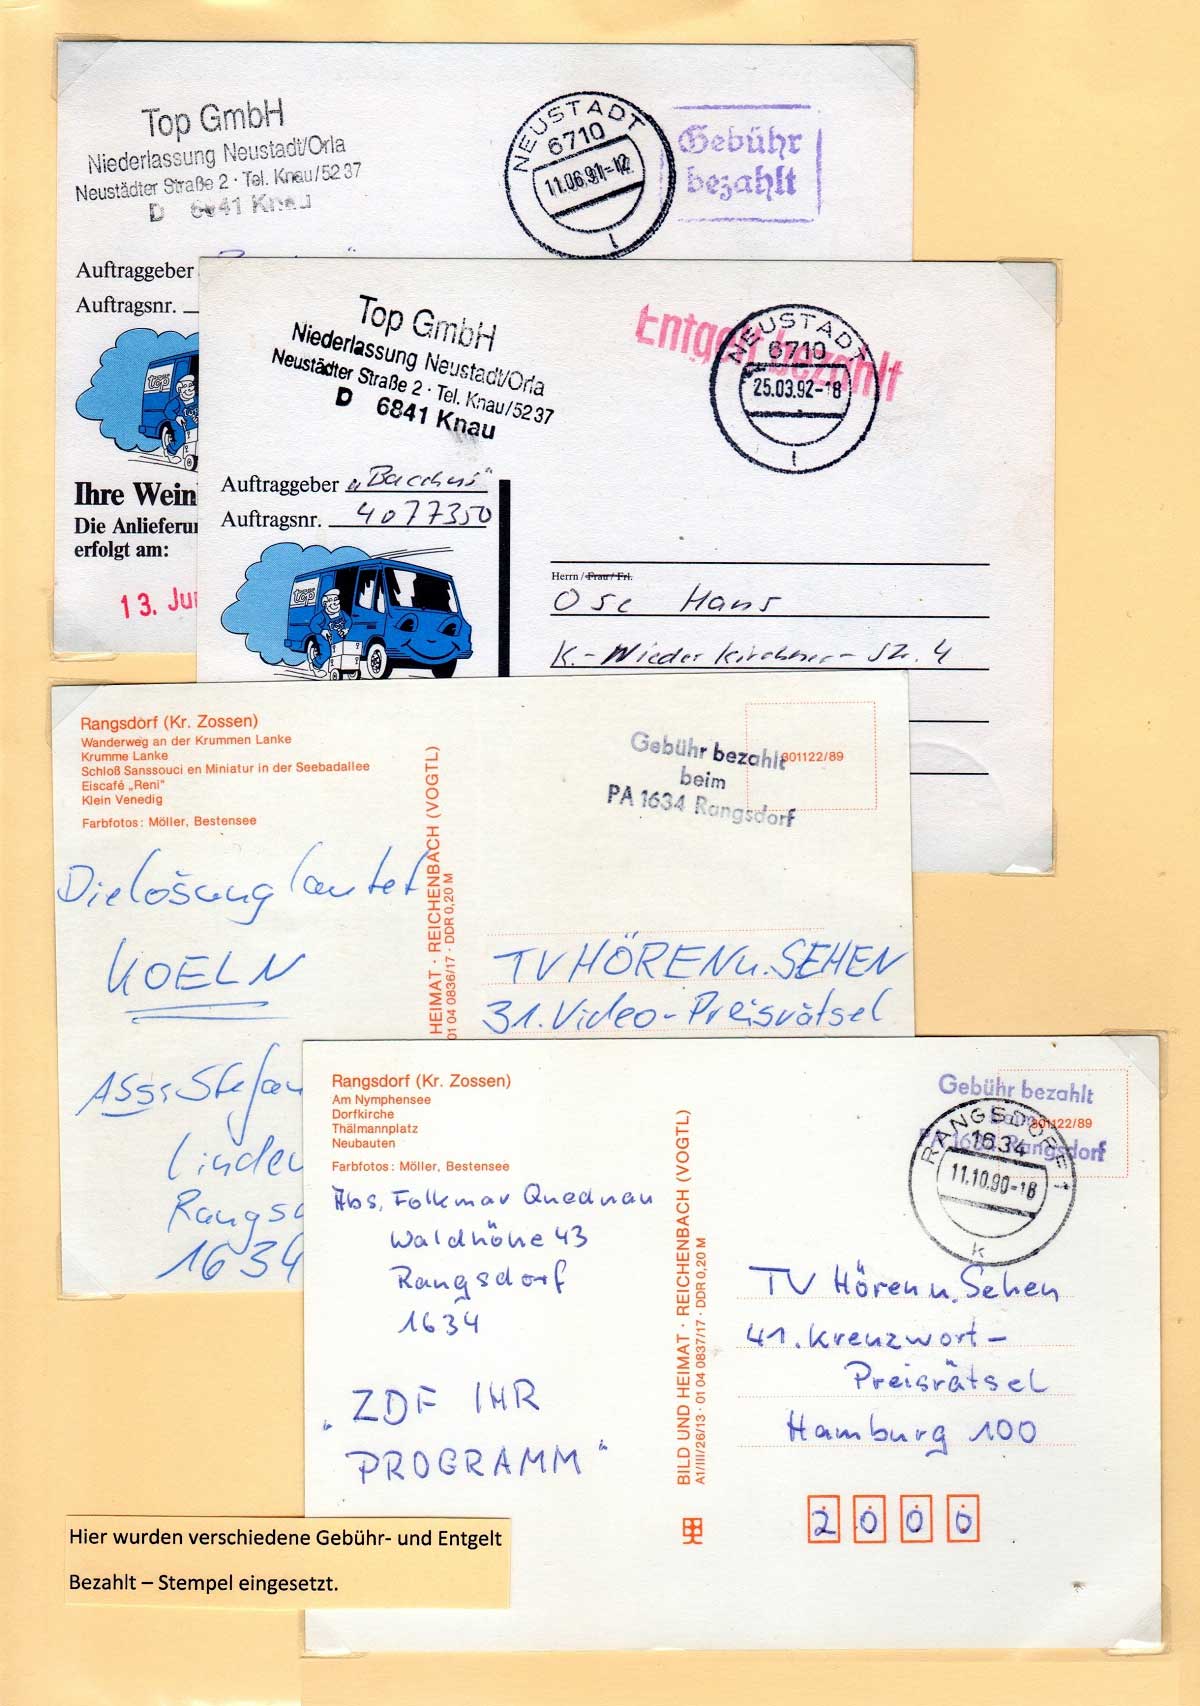 Top GmbH
Niederlassung Neustadt/Orla
Neustädter Straße 2 · Tel. Knau/52 37
D 6841 Knau
NEUSTADT
6710
11.06.91-12
l
Gebühr
bezahlt
Auftraggeber
Auftragsnr.
top
Ihre Wein
Die Anlieferu
erfolgt am:
13. Ju
Top GmbH
Niederlassung Neustadt/Orla
Neustädter Straße 2 · Tel. Knau/52 37
D 6841 Knau
Entgelt bezahlt
NEUSTADT
6710
25.03.92-18
l
Auftraggeber „Bacchus"
Auftragsnr. 4077350
top
Herrn / Frau / Frl.
Ose Hans
K.-Niederkirchner-Str. 4
Rangsdorf (Kr. Zossen)
Wanderweg an der Krummen Lanke
Krumme Lanke
Schloß Sanssouci en Miniatur in der Seebadallee
Eiscafé „Reni"
Klein Venedig
Farbfotos: Möller, Bestensee
HEIMAT · REICHENBACH (VOGTL)
01 04 0836/17 · DDR 0,20 M
Gebühr bezahlt
beim
PA 1634 Rangsdorf
801122/89
Die Lösung lautet
KOELN
TV HÖREN u. SEHEN
31. Video-Preisrätsel
Abs: Stefan
Linden
Rangs
1634
Rangsdorf (Kr. Zossen)
Am Nymphensee
Dorfkirche
Thälmannplatz
Neubauten
Farbfotos: Möller, Bestensee
BILD UND HEIMAT · REICHENBACH (VOGTL)
A1/III/26/13 · 01 04 0837/17 · DDR 0,20 M
Gebühr bezahlt
beim
PA 1634 Rangsdorf
801122/89
RANGSDORF 1
1634
11.10.90-18
k
Abs. Folkmar Quednau
Waldhöhe 43
Rangsdorf
1634
„ZDF IHR
PROGRAMM"
TV Hören u. Sehen
41. Kreuzwort-
Preisrätsel
Hamburg 100
2000
Hier wurden verschiedene Gebühr- und Entgelt
Bezahlt – Stempel eingesetzt.